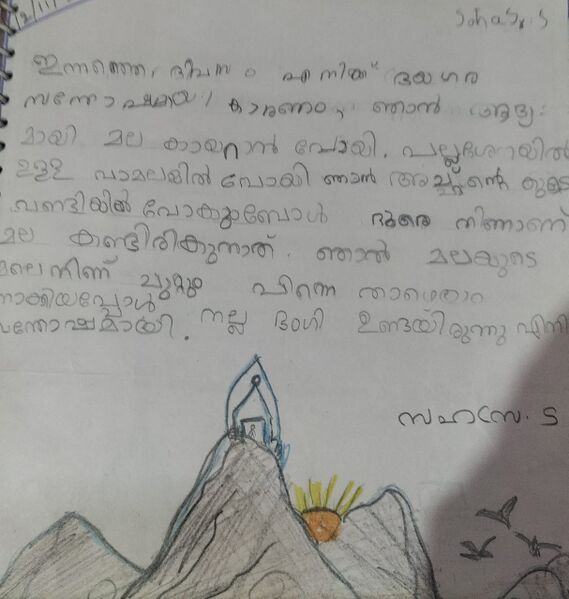 2/11
Sohasr.S
ഇന്നത്തെ ദിവസം എനിക്ക് ഭയഗര
സന്തോഷമായി കാരണം, ഞാൻ ആദ്യ
മായി മല കയറാൻ പോയി. പല്ലശേനയിൽ
ഉള്ള വാമലയിൽ പോയി ഞാൻ അച്ഛന്റെ കൂടെ
വണ്ടിയിൽ പോകുമ്പോൾ ദൂരെ നിന്നാണ്
മല കണ്ടിരികുന്നത്. ഞാൻ മലയുടെ
നിന്ന് ചുറ്റും പിന്നെ
നോക്കിയപ്പോൾ
സന്തോഷമായി. നല്ല ഭംഗി ഉണ്ടയിരുന്നു എനി
സഹസ്ര. S